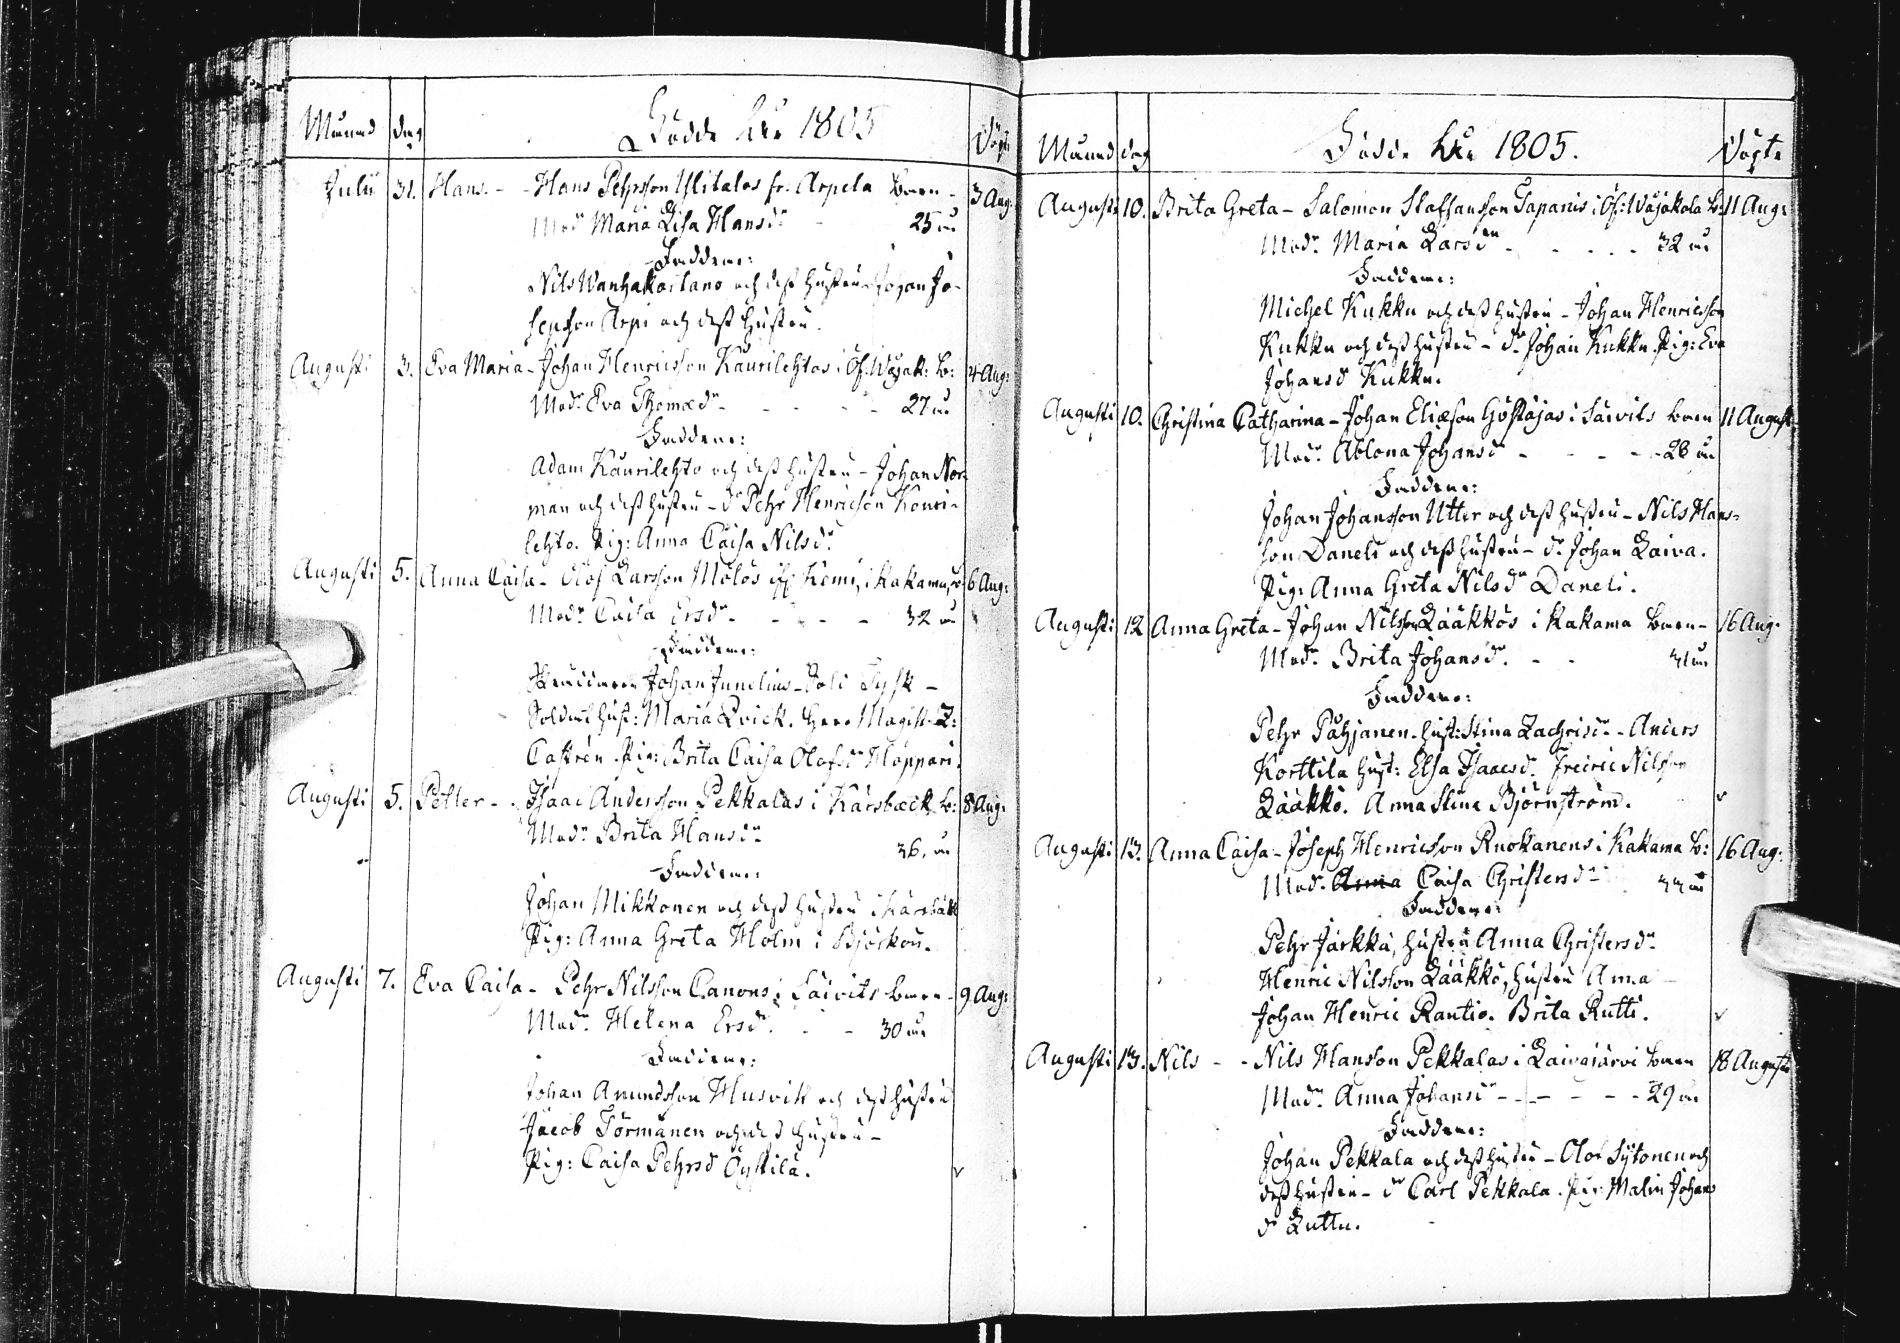 Månad dag Födde År 1805 Döpte
Julii 31. Hans - - Hans Pehrsson Ylitalos fr. Arpela barn - 3 Aug:
Modr Maria Lisa Hansdr 25 år
Faddrar:
Nils Wanhakartano och dess hustru - Johan Jo-
sepsson Arpi och dess hustru.
Augusti 3. Eva Maria - Johan Henricsson Kaurilehtos i Öf. Wojak: b: 4 Aug:
Modr Eva Thomædr - - - - 27 år
Faddrar:
Adam Kaurilehto och dess hustru - Johan Nor-
man och dess hustru - dr Pehr Henricson Kouri-
lehto. Pig: Anna Caisa Nilsdr
Augusti 5. Anna Caisa - Olof Larsson Mölös ifr. Kemi, i Kakama, b: 6 Aug:
Modr Caisa Ersdr - - - - 32 år
Faddrar:
Johan Junelius - Tysk -
Soldat hust: Maria Qvick. Herr Magist. Z:
Castrén. Pig: Brita Caisa Olofsdr Hoppari.
Augusti 5. Petter - - Isaac Andersson Pekkalas i Kärsbäck b: 8 Aug:
Modr Brita Hansdr 36. år
Faddrar:
Johan Mikkonen och dess hustru i Kärsbäck
Pig: Anna Greta Holm i Björkön.
Augusti 7. Eva Caisa - Pehr Nilsson Canons i Laivits barn - 9 Aug:
Modr Helena Ersdr - - 30 år
Faddrar:
Johan Amundsson Husvik och dess hustru
Jacob Törmänen och dess hustru -
Pig: Caisa Pehrsd Öystilä.
Månad dag Födde År 1805. Döpte
Augusti 10. Brita Greta - Salomon Staffansson Tapanis i Öf: Wojakala b: 11 Aug:
Modr Maria Larsdr - - - - - 32 år
Faddrar:
Michel Kukko och dess hustru - Johan Henricsson
Kukko och dess hustru - dr Johan Kukko. Pig: Eva
Johansd Kukko.
Augusti 10. Christina Catharina - Johan Eliæson Göstajas i Laivits barn 11 August
Modr Ablona Johansd - - - - - 28 år
Faddrar:
Johan Johansson Utter och dess hustru - Nils Hans-
son Daneli och dess hustru - dr Johan Laiva.
Pig: Anna Greta Nilsdr Daneli.
Augusti 12 Anna Greta - Johan Nilsson Lääkkös i Kakama barn - 16 Aug.
Modr Brita Johansdr - - 31 år
Faddrar:
Pehr Pahjanen. hust: Stina Zachrisdr - Anders
Korttila hust: Elsa Isaacsd. Fredric Nilsson
Lääkkö. Anna Stina Björnström.
Augusti 13. Anna Caisa - Joseph Henricsson Ruokanens i Kakama b: 16 Aug:
Modr Anna Caisa Christersdr 33 år
Faddrar:
Pehr Jarkkä, hustru Anna Christersdr
Henric Nilsson Lääkkö, hustru Anna -
Johan Henric Rantio. Brita Rutti.
Augusti 13. Nils - - Nils Hansson Pekkalas i Laivajärvi barn 18 Augusti
Modr Anna Johansdr - - - - - - 29 år
Faddrar:
Johan Pekkala och dess hustru - Olof Sytonen och
dess hustru - dr Carl Pekkala. Pig: Malin Johans
dr Luttu.